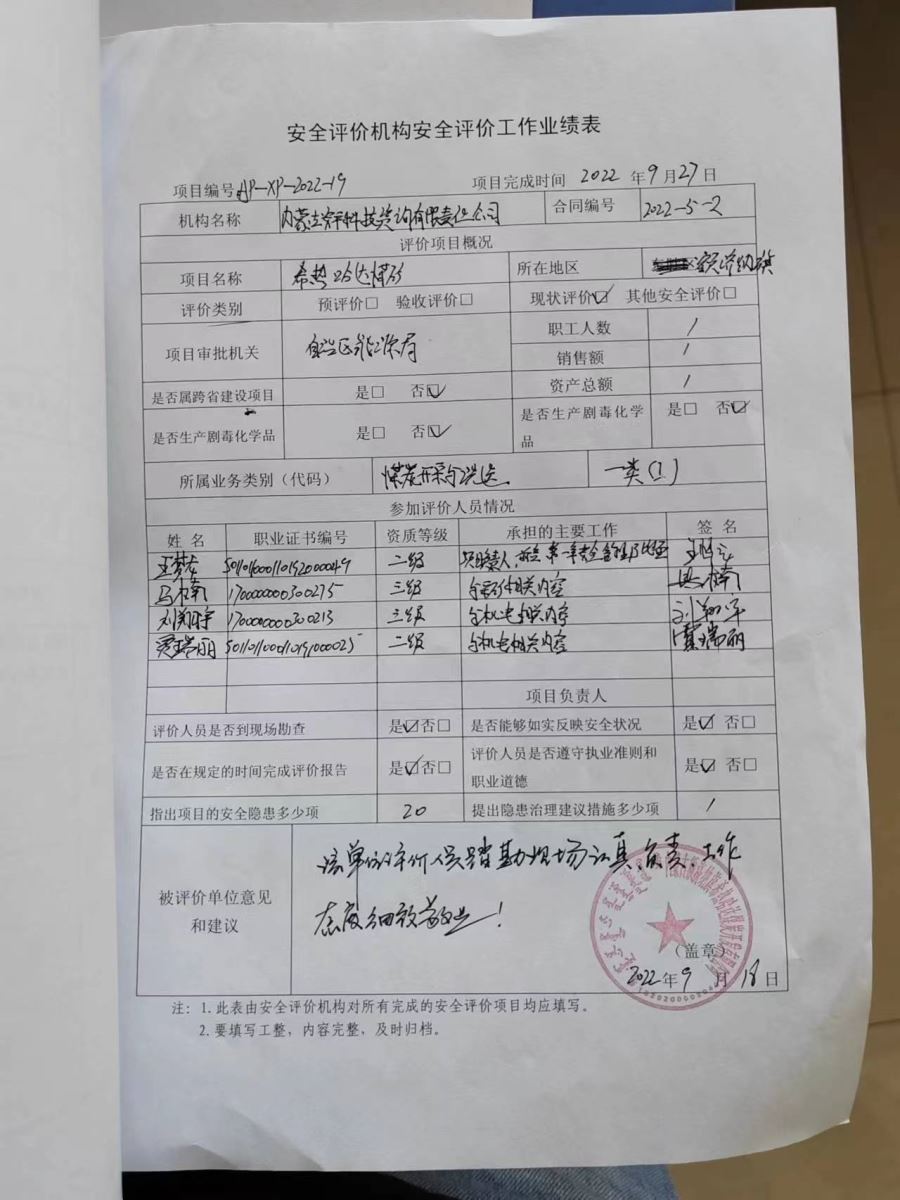 安全评价机构安全评价工作业绩表
项目编号 AP-XP-2022-19 项目完成时间 2022 年 9 月 27 日
机构名称 内蒙古 科技咨询有限责任公司 合同编号 2022-5-2
评价项目概况
项目名称 所在地区
评价类别 预评价□ 验收评价□ 现状评价☑ 其他安全评价□
项目审批机关 自治区能源局 职工人数 /
销售额 /
资产总额 /
是否属跨省建设项目 是□ 否☑
是否生产剧毒化学品 是□ 否☑ 是否生产剧毒化学品 是□ 否☑
所属业务类别（代码） 煤炭开采与洗选 一类(1)
参加评价人员情况
姓 名 职业证书编号 资质等级 承担的主要工作 签 名
二级
马楠 1700000000300275 三级 相关内容
刘翔宇 1700000000300213 三级 与机电相关内容 刘翔宇
瑞丽 二级 与机电相关内容 瑞丽
项目负责人
评价人员是否到现场勘查 是☑否□ 是否能够如实反映安全状况 是☑ 否□
是否在规定的时间完成评价报告 是☑否□ 评价人员是否遵守执业准则和职业道德 是☑ 否□
指出项目的安全隐患多少项 20 提出隐患治理建议措施多少项 /
被评价单位意见和建议
该单位评价人员踏勘现场认真、负责、工作
态度细致敬业！
（盖章）
2022 年 9 月 18 日
注：1. 此表由安全评价机构对所有完成的安全评价项目均应填写。
2. 要填写工整，内容完整，及时归档。